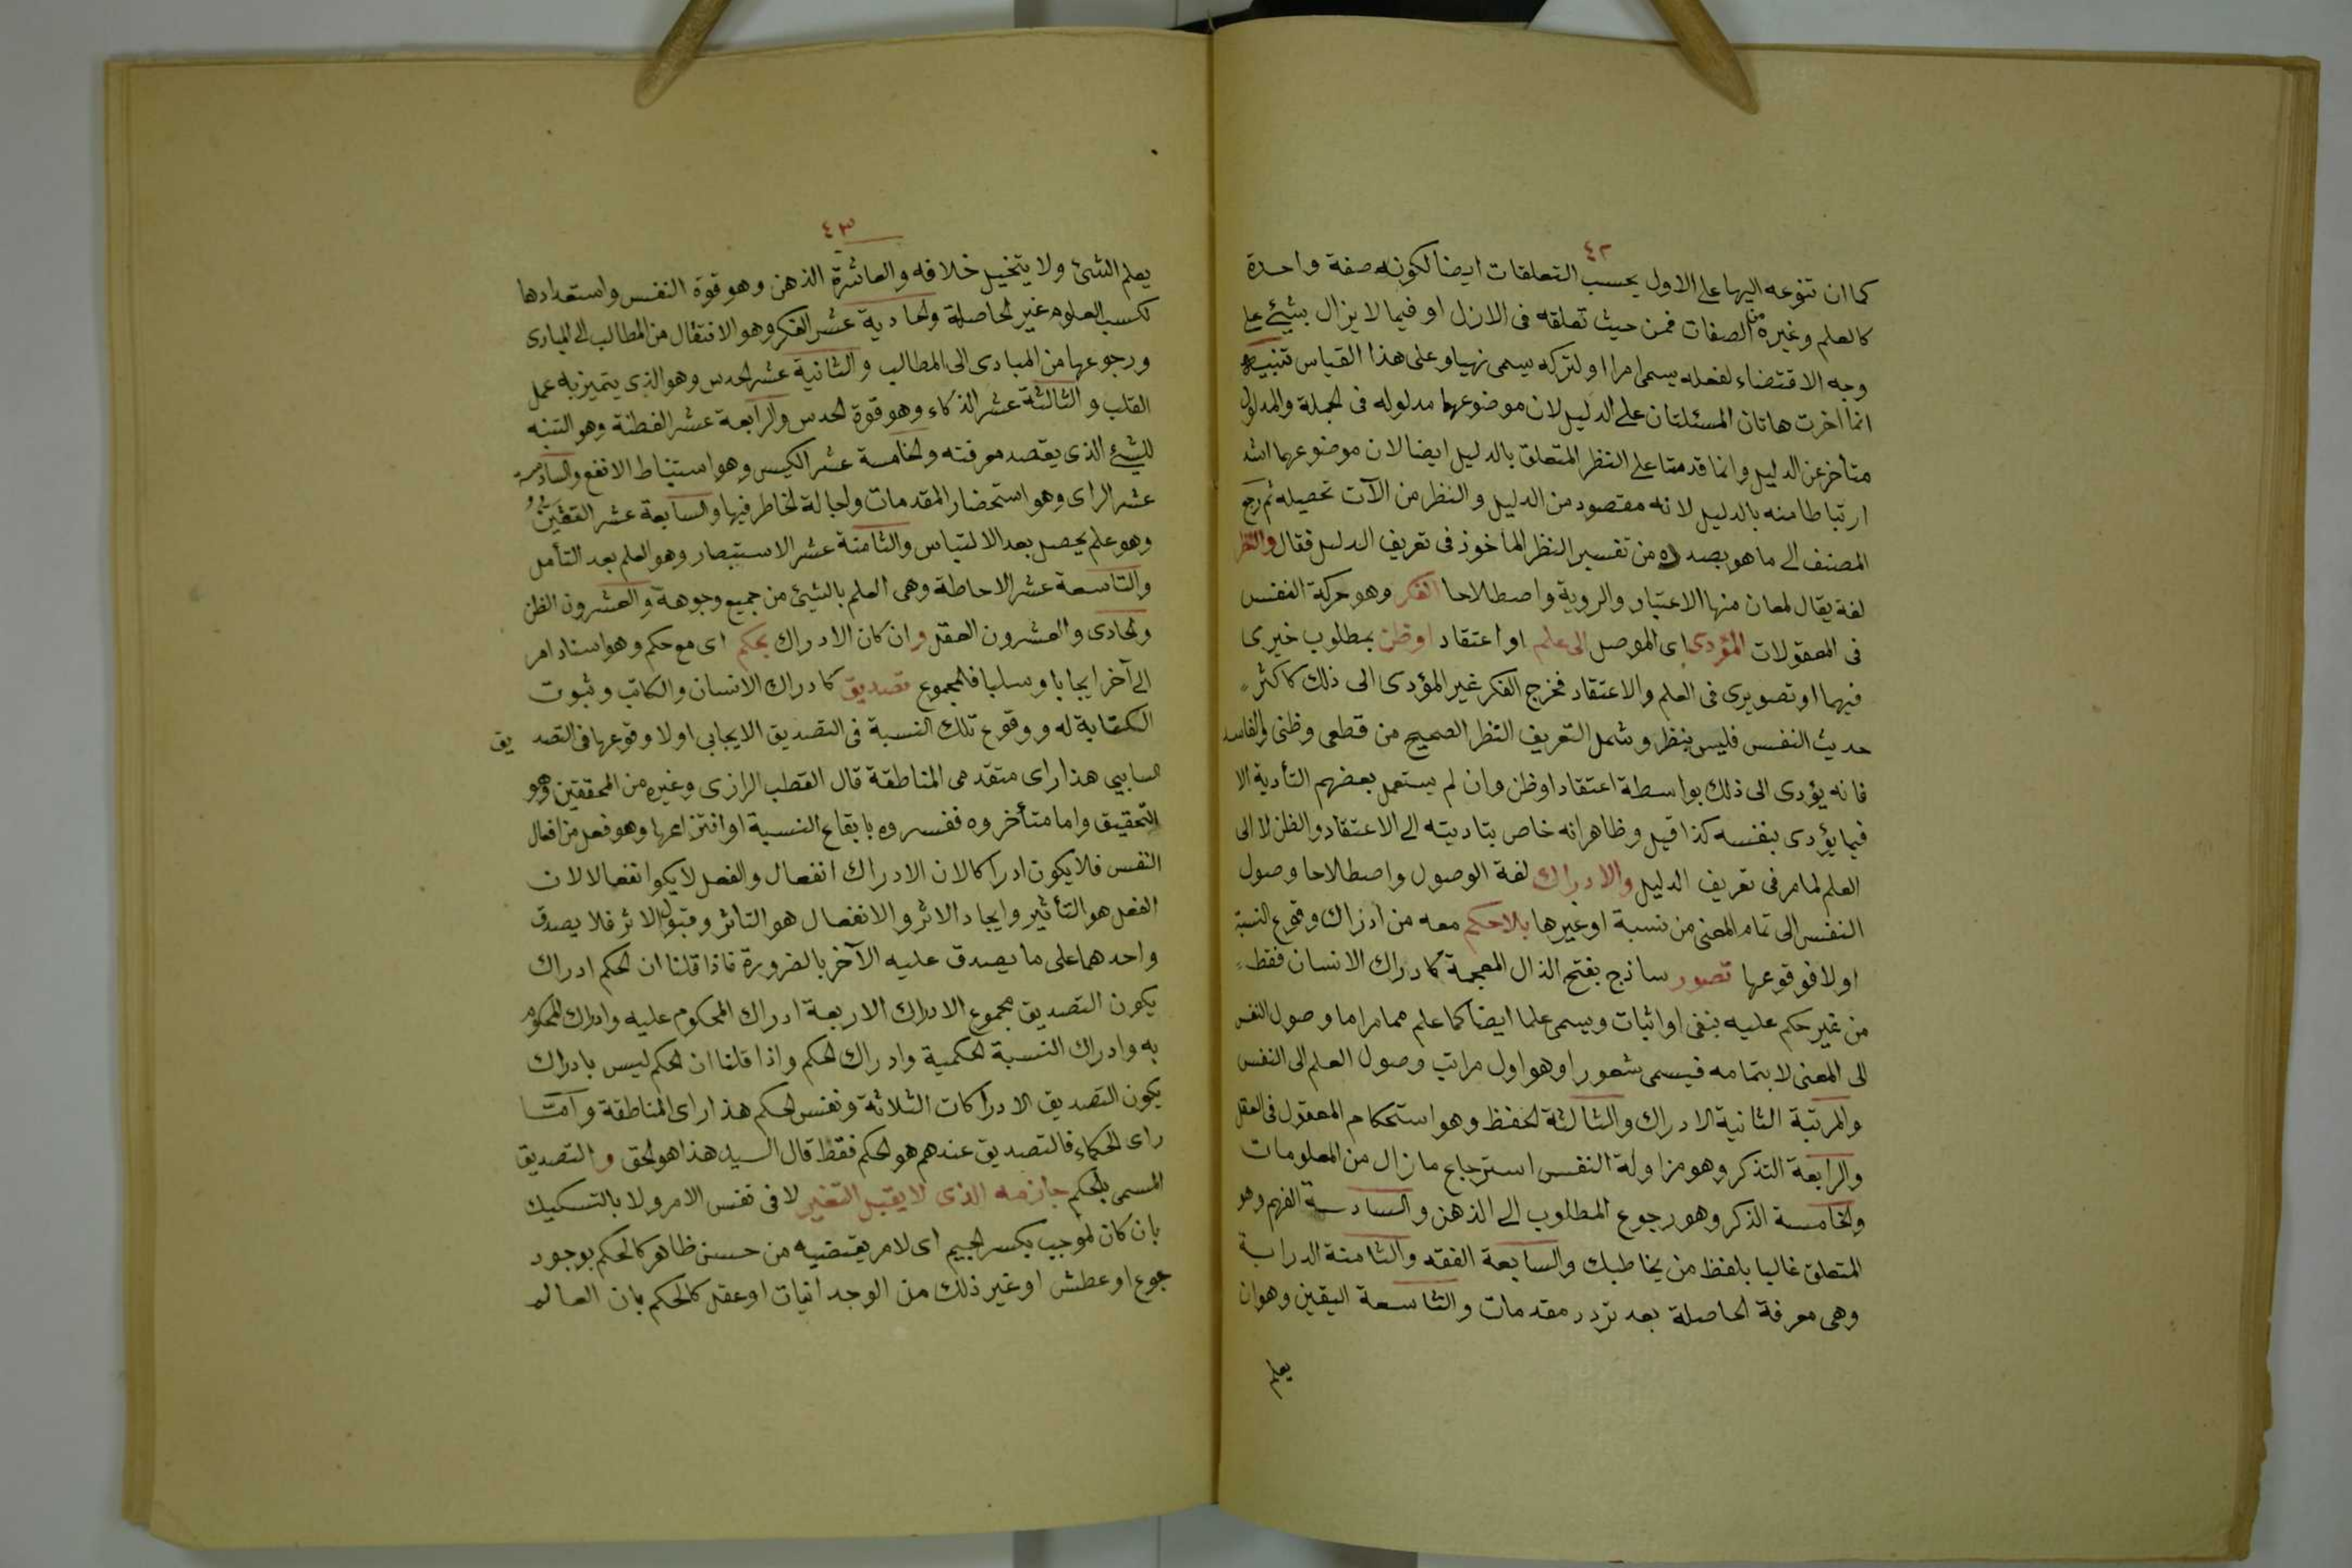 ٤٢
كما ان تنوعه اليها على الاول بحسب التعلقات ايضا لكونه صفة واحدة
كالعلم وغيره من الصفات فمن حيث تعلقه فى الازل او فيما لا يزال بشيئ على
وجه الاقتضاء لفعله يسمى امرا او لتركه يسمى نهيا وعلى هذا القياس تنبيه
انما أخرت هاتان المسئلتان على الدليل لان موضوعهما مدلوله فى الجملة والمدلول
متأخر عن الدليل وانما قدمتا على النظر المتعلق بالدليل ايضا لان موضوعهما اشد
ارتباطا منه بالدليل لانه مقصود من الدليل والنظر من الآت تحصيله ثم رجع
المصنف الى ما هو بصدده من تفسير النظر الماخوذ فى تعريف الدليل فقال والنظر
لغة يقال لمعان منها الاعتبار والروية واصطلاحا الفكر وهو حركة النفس
فى المعقولات المؤدى اى الموصل الى علم او اعتقاد او ظن بمطلوب خبرى
فيهما او تصويرى فى العلم والاعتقاد فخرج الفكر غير المؤدى الى ذلك كاكثر
حديث النفس فليس بنظر وشمل التعريف النظر الصحيح من قطعى وظنى والفاسد
فانه يؤدى الى ذلك بواسطة اعتقاد او ظن وان لم يستعمل بعضهم التأدية الا
فيما يؤدى بنفسه كذا قيل وظاهرانه خاص بتاديته الى الاعتقاد والظن لا الى
العلم لما مر فى تعريف الدليل والادراك لغة الوصول واصطلاحا وصول
النفس الى تمام المعنى من نسبة او غيرها بلاحكم معه من ادراك وقوع النسبة
اولا فوقوعها تصور ساذج بفتح الذال المعجمة كادراك الانسان فقط
من غير حكم عليه بنفى او اثبات ويسمى علما ايضا كما علم مما مر اما وصول النفس
الى المعنى لا بتمامه فيسمى شعورا وهو اول مراتب وصول العلم الى النفس
والمرتبة الثانية الادراك والثالثة الحفظ وهو استحكام المعقول فى العقل
والرابعة التذكر وهو مزاولة النفس استرجاع ما زال من المعلومات
والخامسة الذكر وهو رجوع المطلوب الى الذهن والسادسة الفهم وهو
المتعلق غالبا بلفظ من يخاطبك والسابعة الفقه والثامنة الدراية
وهى معرفة الحاصلة بعد تردد مقدمات والتاسعة اليقين وهو ان
يعلم
٤٣
يعلم الشئ ولا يتخيل خلافه والعاشرة الذهن وهو قوة النفس واستعدادها
لكسب العلوم غير الحاصلة والحادية عشر الفكر وهو الانتقال من المطالب الى المبادى
ورجوعها من المبادى الى المطالب والثانية عشر الحدس وهو الذى يتميز به عمل
القلب والثالثة عشر الذكاء وهو قوة الحدس والرابعة عشر الفطنة وهو التنبه
للشيئ الذى يقصد معرفته والخامسة عشر الكيس وهو استنباط الانفع والسادسة
عشر الراى وهو استحضار المقدمات واجالة الخاطر فيها والسابعة عشر التبين
وهو علم يحصل بعد الالتباس والثامنة عشر الاستبصار وهو العلم بعد التأمل
والتاسعة عشر الاحاطة وهى العلم بالشيئ من جميع وجوهه والعشرون الظن
والحادى والعشرون العقل وان كان الادراك بحكم اى مع حكم وهو اسناد امر
الى آخر ايجابا او سلبا فالمجموع تصديق كادراك الانسان والكاتب وثبوت
الكتابة له ووقوع تلك النسبة فى التصديق الايجابى اولا وقوعها فى التصديق
السابى هذا راى متقدمى المناطقة قال القطب الرازى وغيره من المحققين وهو
التحقيق واما متأخروه ففسروه بايقاع النسبة او انتزاعها وهو فعل من افعال
النفس فلا يكون ادراكا لان الادراك انفعال والفعل لا يكوا نفعالا لان
الفعل هو التأثير وايجاد الاثر والانفعال هو التاثر وقبول الاثر فلا يصدق
واحدهما على ما يصدق عليه الآخر بالضرورة فاذا قلنا ان الحكم ادراك
يكون التصديق مجموع الادراك الاربعة ادراك المحكوم عليه وادراك المحكوم
به وادراك النسبة الحكمية وادراك الحكم واذا قلنا ان الحكم ليس بادراك
يكون التصديق الادراكات الثلاثة ونفس الحكم هذا راى المناطقة وامّا
راى الحكماء فالتصديق عندهم هو الحكم فقط قال السيد هذا هو الحق والتصديق
المسمى بالحكم جازمه الذى لا يقبل التغير لا فى نفس الامر ولا بالتسكيك
بان كان لموجب بكسر الجيم اى لامر يقتضيه من حسن ظاهر كالحكم بوجود
جوع او عطش او غير ذلك من الوجدانيات او عقل كالحكم بان العالم